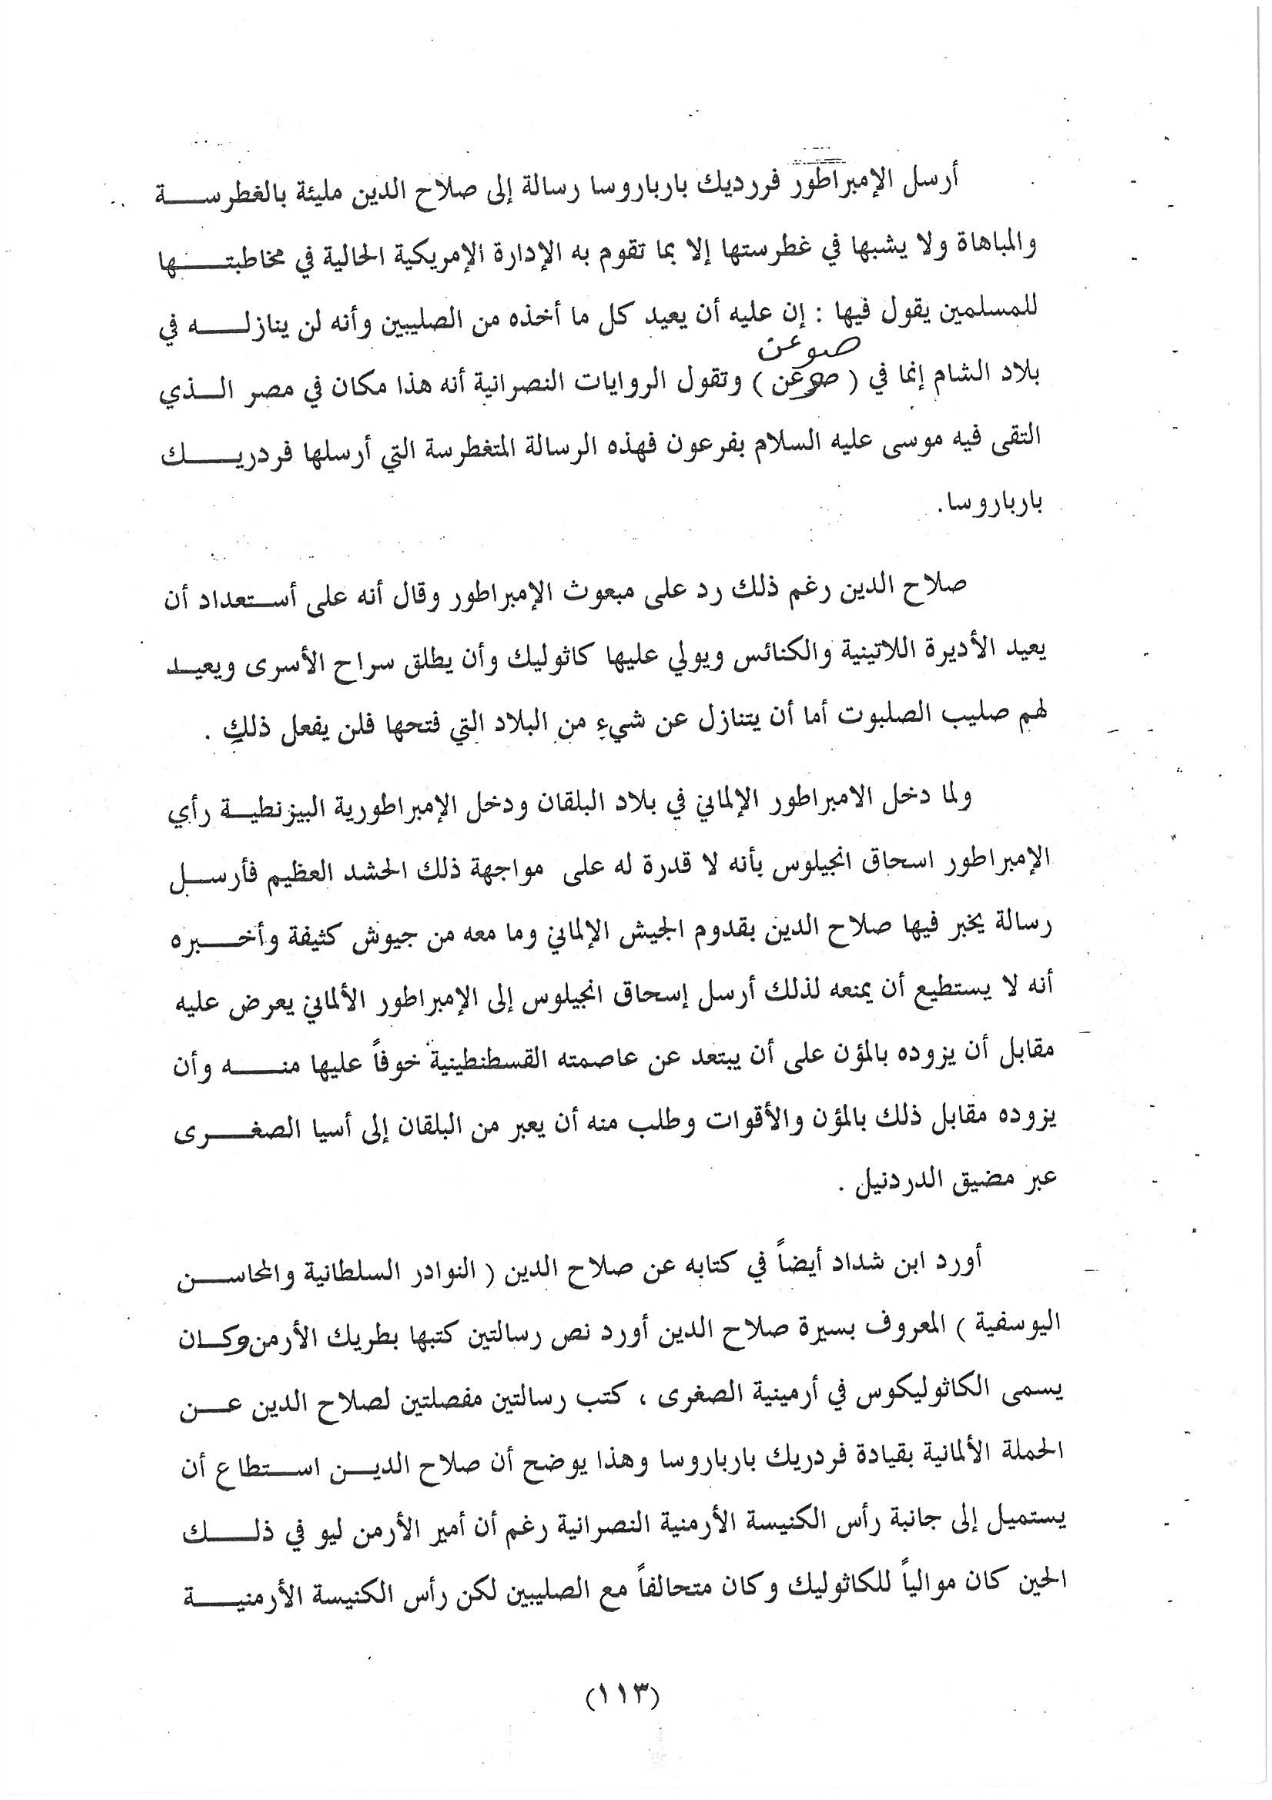 أرسل الإمبراطور فرديك بارباروسا رسالة إلى صلاح الدين مليئة بالغطرسة
والمباهاة ولا يشبها في غطرستها إلا بما تقوم به الإدارة الإمريكية الحالية في مخاطبتها
للمسلمين يقول فيها : إن عليه أن يعيد كل ما أخذه من الصليبين وأنه لن ينازله في
صوعن
بلاد الشام إنما في ( صوعن ) وتقول الروايات النصرانية أنه هذا مكان في مصر الذي
التقى فيه موسى عليه السلام بفرعون فهذه الرسالة المتغطرسة التي أرسلها فردريك
بارباروسا.
صلاح الدين رغم ذلك رد على مبعوث الإمبراطور وقال أنه على أستعداد أن
يعيد الأديرة اللاتينية والكنائس ويولي عليها كاثوليك وأن يطلق سراح الأسرى ويعيد
لهم صليب الصلبوت أما أن يتنازل عن شيءٍ من البلاد التي فتحها فلن يفعل ذلك .
ولما دخل الامبراطور الإلماني في بلاد البلقان ودخل الإمبراطورية البيزنطية رأي
الإمبراطور اسحاق انجيلوس بأنه لا قدرة له على مواجهة ذلك الحشد العظيم فأرسل
رسالة يخبر فيها صلاح الدين بقدوم الجيش الإلماني وما معه من جيوش كثيفة وأخبره
أنه لا يستطيع أن يمنعه لذلك أرسل إسحاق انجيلوس إلى الإمبراطور الألماني يعرض عليه
مقابل أن يزوده بالمؤن على أن يبتعد عن عاصمته القسطنطينية خوفاً عليها منه وأن
يزوده مقابل ذلك بالمؤن والأقوات وطلب منه أن يعبر من البلقان إلى أسيا الصغرى
عبر مضيق الدردنيل .
أورد ابن شداد أيضاً في كتابه عن صلاح الدين ( النوادر السلطانية والمحاسن
اليوسفية ) المعروف بسيرة صلاح الدين أورد نص رسالتين كتبها بطريك الأرمن وكان
يسمى الكاثوليكوس في أرمينية الصغرى ، كتب رسالتين مفصلتين لصلاح الدين عن
الحملة الألمانية بقيادة فردريك بارباروسا وهذا يوضح أن صلاح الدين استطاع أن
يستميل إلى جانبة رأس الكنيسة الأرمنية النصرانية رغم أن أمير الأرمن ليو في ذلك
الحين كان موالياً للكاثوليك وكان متحالفاً مع الصليبين لكن رأس الكنيسة الأرمنية
(١١٣)